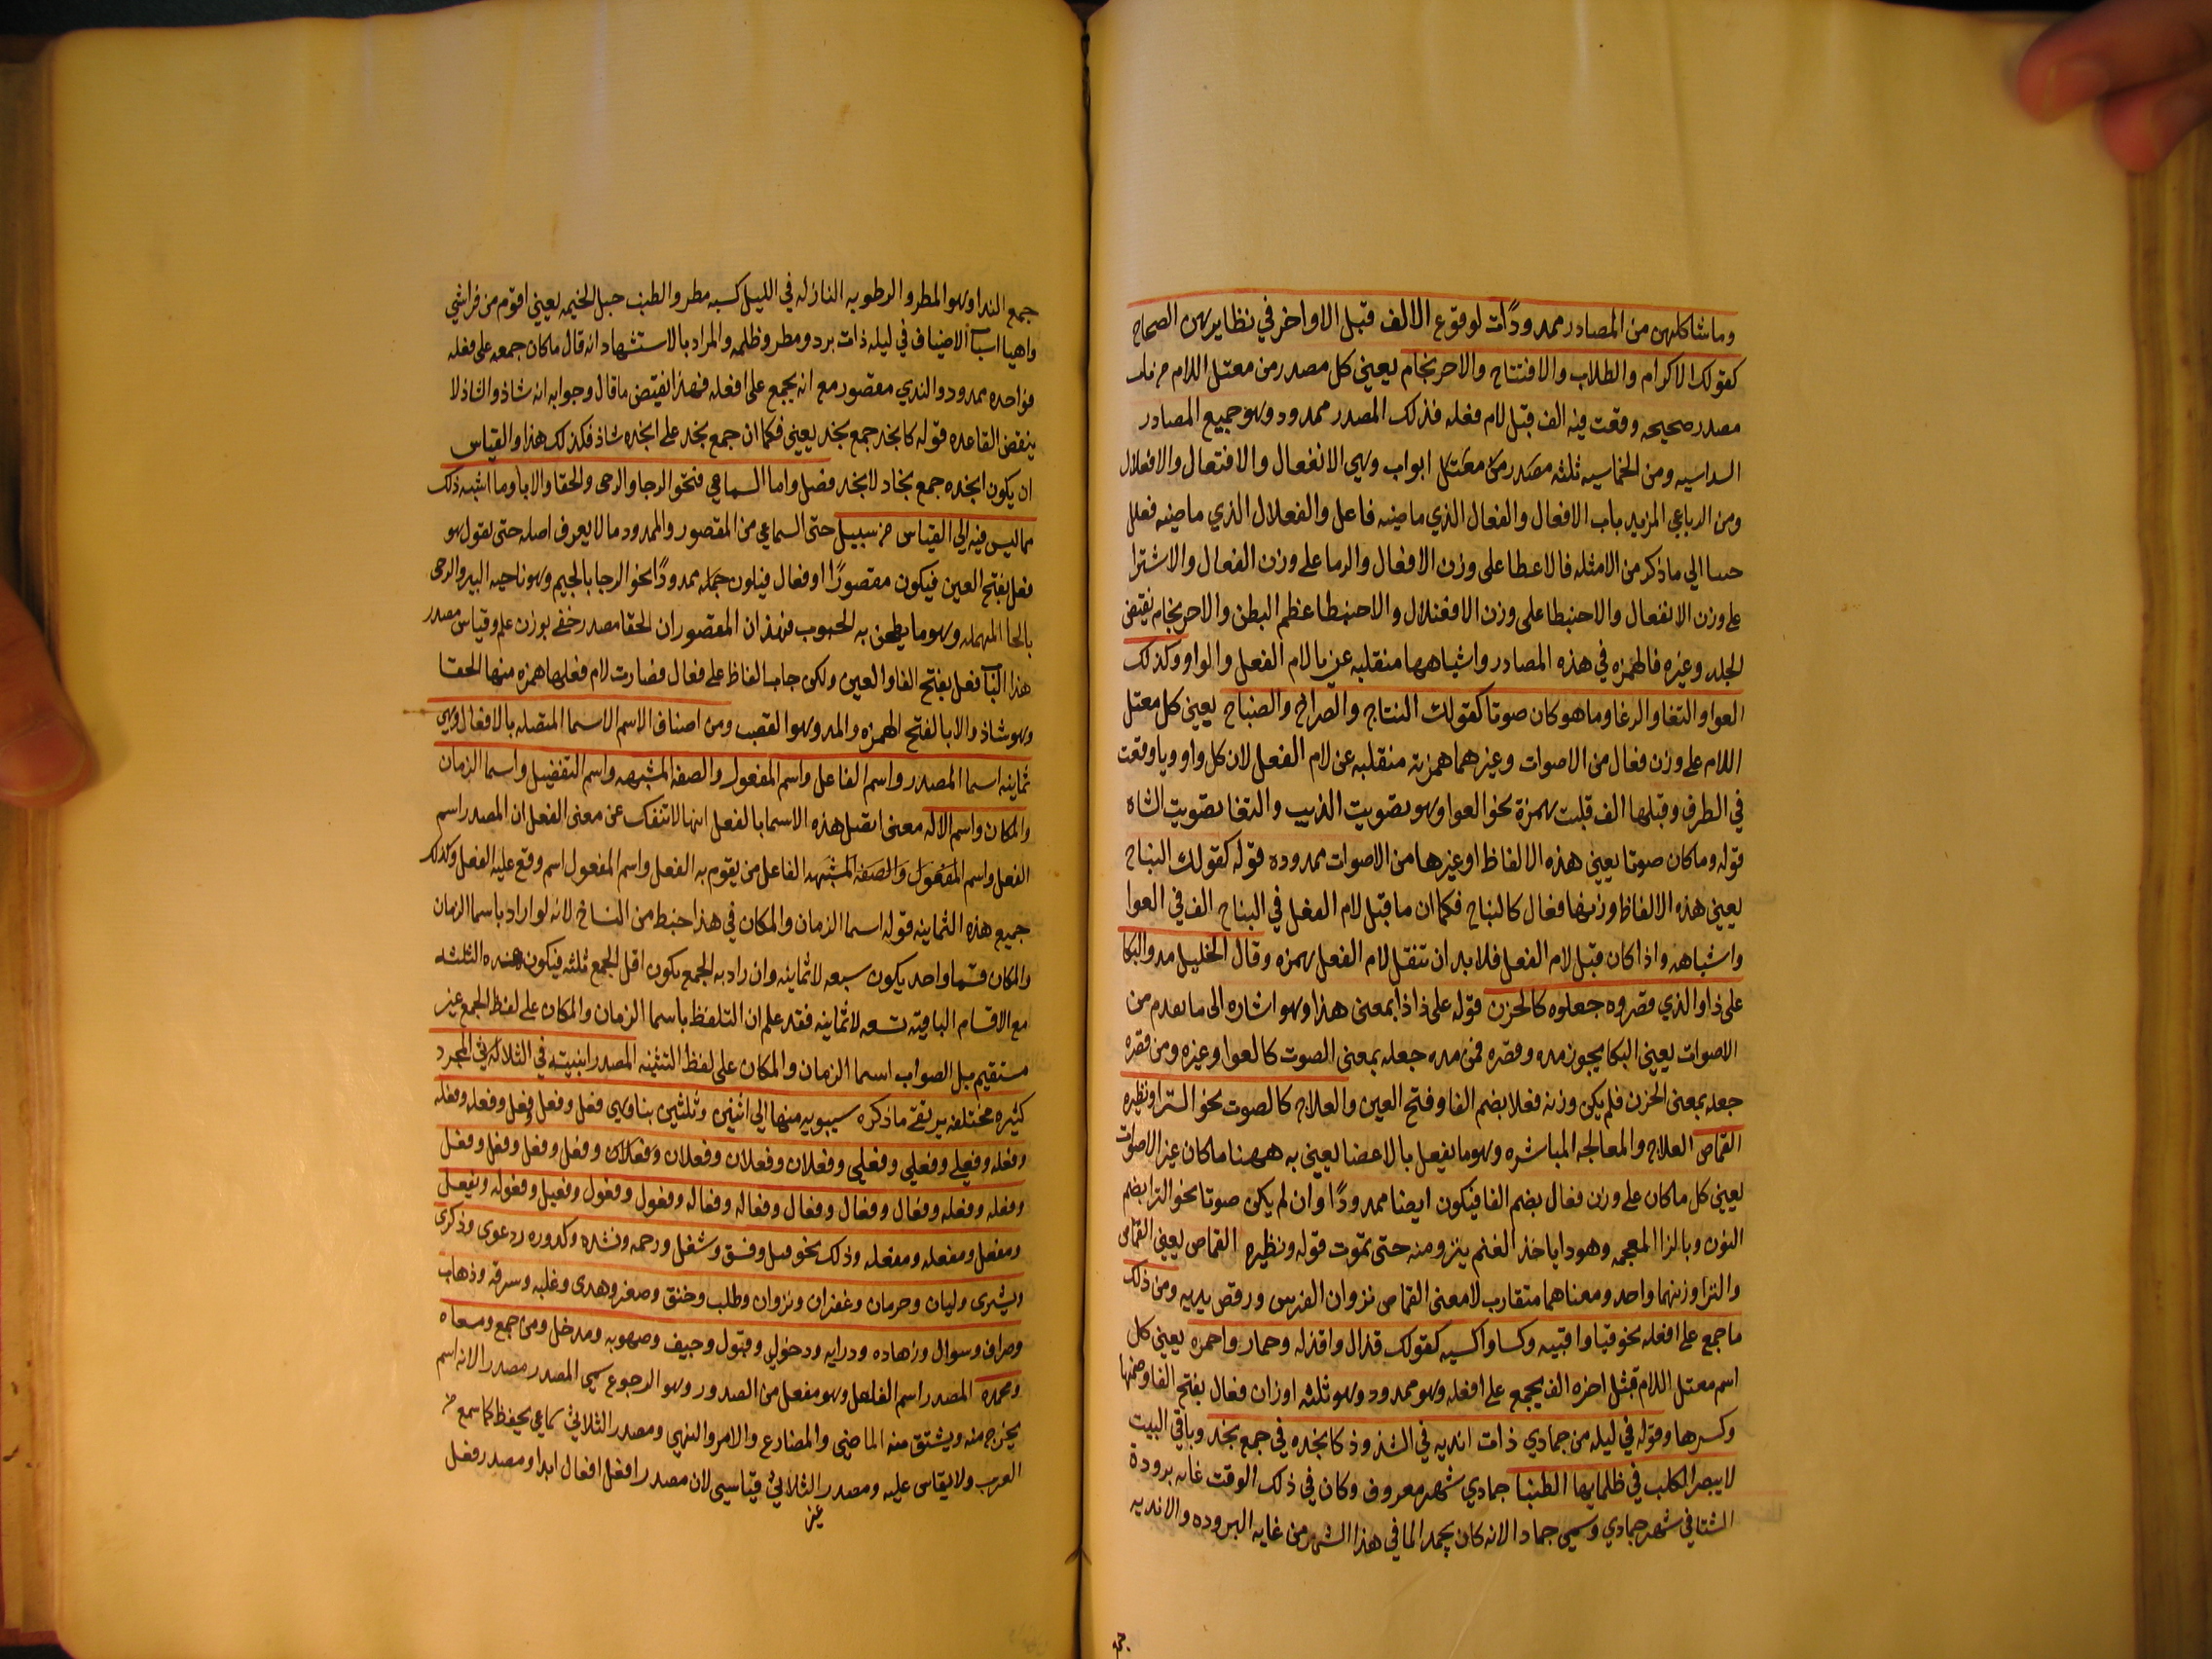 وما شاكلهن من المصادر ممدودًات لوقوع الالف قبل الاواخر في نظايرهن الصحاح
كقولك الاكرام والطلاب والافتتاح والاحرنجام يعني كل مصدر من معتل اللام من باب
مصدر صحيحه وقعت فيه الف قبل لام فعله فذلك المصدر ممدود وهو جميع المصادر
السداسيه ومن الخماسيه ثلثه مصدر من معتل ابواب وهي الانفعال والافتعال والافعلال
ومن الرباعي المزيد باب الافعال والفعال الذي ماضيه فاعل والفعلال الذي ماضيه فعلل
الي ما ذكر من الامثله فالاعطا على وزن الافعال والرما على وزن الفعال والاشترا
على وزن الافتعال والاحبنطا على وزن الافعنلال والاحبنطا عظم البطن والاحرنجام نقيض
الجلد وغيره فالهمزه في هذه المصادر واشباهها منقلبه عن يا لام الفعل والواو وكذلك
العوا والثغا والرغا وما هو كان صوتا كقولك النباح والصراخ والضباح يعني كل معتل
اللام على وزن فعال من الاصوات وغيرهما همزته منقلبه عن لام الفعل لان كل واو ويا وقعت
في الطرف وقبلها الف قلبت همزة نحو العوا وهو تصويت الذيب والثغا تصويت الشاه
قوله وما كان صوتا يعني هذه الالفاظ او غيرها من الاصوات ممدوده قوله كقولك النباح
يعني هذه الالفاظ وزنها فعال كالنباح فكما ان ما قبل لام الفعل في النباح الف في العوا
واشباهه واذا كان قبل لام الفعل فلا بد ان تنقل لام الفعل همزه وقال الخليل مدوا البكا
على ذا والذي قصروه جعلوه كالحزن قوله على ذا ذا بمعنى هذا وهو اشاره الى ما تقدم من
الاصوات يعني البكا يجوز مده وقصره فمن مده جعله بمعنى الصوت كالعوا وغيره ومن قصره
جعله بمعنى الحزن فلم يكن وزنه فعلا بضم الفا وفتح العين والعلاج كالصوت نحو النزا ونظيره
القماص العلاج والمعالجه المباشره وهو ما يفعل بالاعضا يعني به ههنا ما كان غير الاصوات
يعني كل ما كان على وزن فعال بضم الفا فيكون ايضا ممدودًا وان لم يكن صوتا نحو النزا بضم
النون وبالزا المعجمه وهو دا ياخذ الغنم ينزو منه حتى تموت قوله ونظيره القماص يعني القماص
والنزا وزنهما واحد ومعناهما متقارب لا معنى القماص نزوان الفرس ورقص بيديه ومن ذلك
ما جمع على افعله نحو قبا واقبيه وكسا واكسيه كقولك قذال واقذله وحمار واحمره يعني كل
اسم معتل اللام قبل اخره الف يجمع على افعله وهو ممدود وهو ثلثه اوزان فعال بفتح الفا وضمها
وكسرها وقوله في ليله من جمادي ذات انديه في الشذوذ كانجده في جمع نجد وباقي البيت
لا يبصر الكلب في ظلمايها الطنبا جمادي شهر معروف وكان في ذلك الوقت غايه برودة
الشتا في شهر جمادي وسمي جمادا لانه كان يجمد الما في هذا الشهر من غايه البروده والانديه
جمع
جمع الندا وهو المطر والرطوبه النازله في الليل كسيه مطر والطنب حبل الخيمه يعني اقوم من فراشي
واهيا اسباب الاضياف في ليله ذات برد ومطر وظلمه والمراد بالاستشهاد انه قال ما كان جمعه على فعله
فواحده ممدود والندي مقصور مع انه يجمع على افعله فهذا نقيض ما قال وجوابه انه شاذ والشاذ لا
ينقض القاعده قوله كانجد جمع نجد يعني فكما ان جمع نجد على انجده شاذ فكذلك هذا والقياس
ان يكون انجده جمع نجاد لا نجد فضل واما السماعي فنحو الرجا والرحى والحفا والابا وما اشبه ذلك
مما ليس فيه الى القياس من سبيل حتى السماعي من المقصور والممدود ما لا يعرف اصله حتى نقول هو
فعل بفتح العين فيكون مقصورًا او فعال فيكون جمله ممدودًا نحو الرجا بالجيم وهو ناحيه البير والرحى
بالحا المهمله وهو ما يطحن به الحبوب فهذان المقصوران الحفا مصدر حفي بوزن علم وقياس مصدر
هذا الباب فعل بفتح الفا والعين ولكن جات الفاظ على فعال فصارت لام فعلها همزه منها الحفا
وهو شاذ والابا لفتح الهمزه والمد وهو القصب ومن اصناف الاسم الاسما المتصله بالافعال وهي
ثمانيه اسما المصدر واسم الفاعل واسم المفعول والصفه المشبهه واسم التفضيل واسما الزمان
والمكان واسم الاله معنى اتصل هذه الاسما بالفعل انها لا تنفك عن معنى الفعل ان المصدر اسم
الفعل واسم المفعول والصفه المشبهه الفاعل من يقوم به الفعل واسم المفعول اسم وقع عليه الفعل وكذلك
جميع هذه الثمانيه قوله اسما الزمان والمكان في هذا خبط من الناسخ لانه لو اراد باسما الزمان
والمكان قسما واحد يكون سبعه لا ثمانيه وان راد به الجمع يكون اقل الجمع ثلثه فيكون هذه الثلثه
مع الاقسام الباقيه تسعه لا ثمانيه فقد علم ان التلفظ باسما الزمان والمكان على لفظ الجمع غير
مستقيم بل الصواب اسما الزمان والمكان على لفظ التثنيه المصدر ابنيته في الثلاثي المجرد
كثيره مختلفه يرتقي ما ذكره سيبويه منها الى اثنين وثلثين بنا وهي فعل وفعل وفعل وفعله وفعله
وفعله وفعلى وفعلي وفعلي وفعلان وفعلان وفعلان وفعلان وفعل وفعل وفعل وفعل
وفعله وفعله وفعال وفعال وفعال وفعاله وفعاله وفعول وفعول وفعيل وفعوله وتفعل
ومفعل ومفعله ومفعله وذلك نحو قتل وفسق وشغل ورحمه ونشده وكدوره ودعوى وذكرى
وبشرى وليان وحرمان وغفران ونزوان وطلب وخنق وصغر وهدى وغلبه وسرقه وذهاب
وصراف وسوال وزهاده ودرايه ودخول وقبول ووجيف وصهوبه ومدخل ومرجع ومسعاه
ومحمده المصدر اسم الفاعل وهو مفعل من الصدور وهو الرجوع سمي المصدر مصدرا لانه اسم
يخرج منه ويشتق منه الماضي والمضارع والامر والنهي ومصدر الثلاثي سماعي يحفظ كما سمع من
العرب ولا يقاس عليه ومصدر الثلاثي قياسي لان مصدر افعل افعال ابدا ومصدر فعل
غير